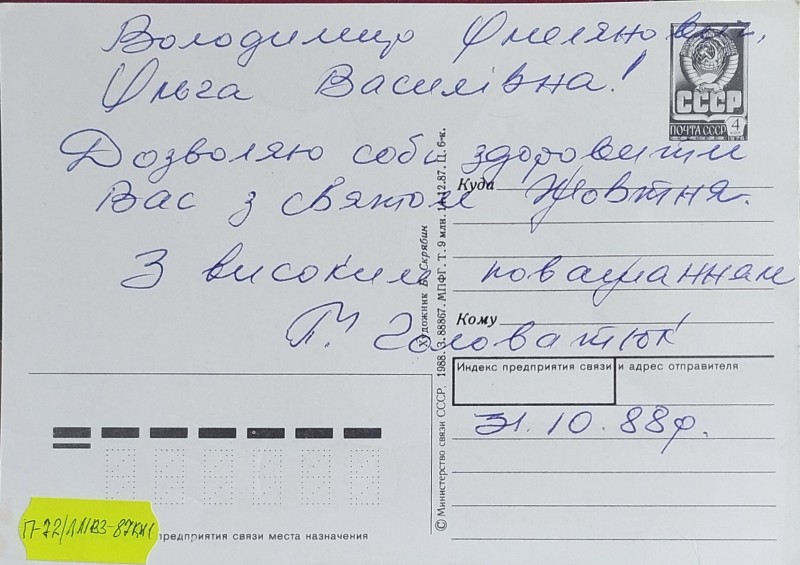 Володимир Омелянович,
Ольга Василівна!
Дозволяю соби здоровити
Вас з святом Жовтня.
З високим поважанням
Г. Головатюк
31.10.88р.
СССР
ПОЧТА СССР 4
Куда
Кому
Индекс предприятия связи и адрес отправителя
Художник Б. Скрябин
© Министерство связи СССР. 1988. З. 88867. МПФГ. Т. 9 млн. 14.12.87. Ц. 6-к.
предприятия связи места назначения